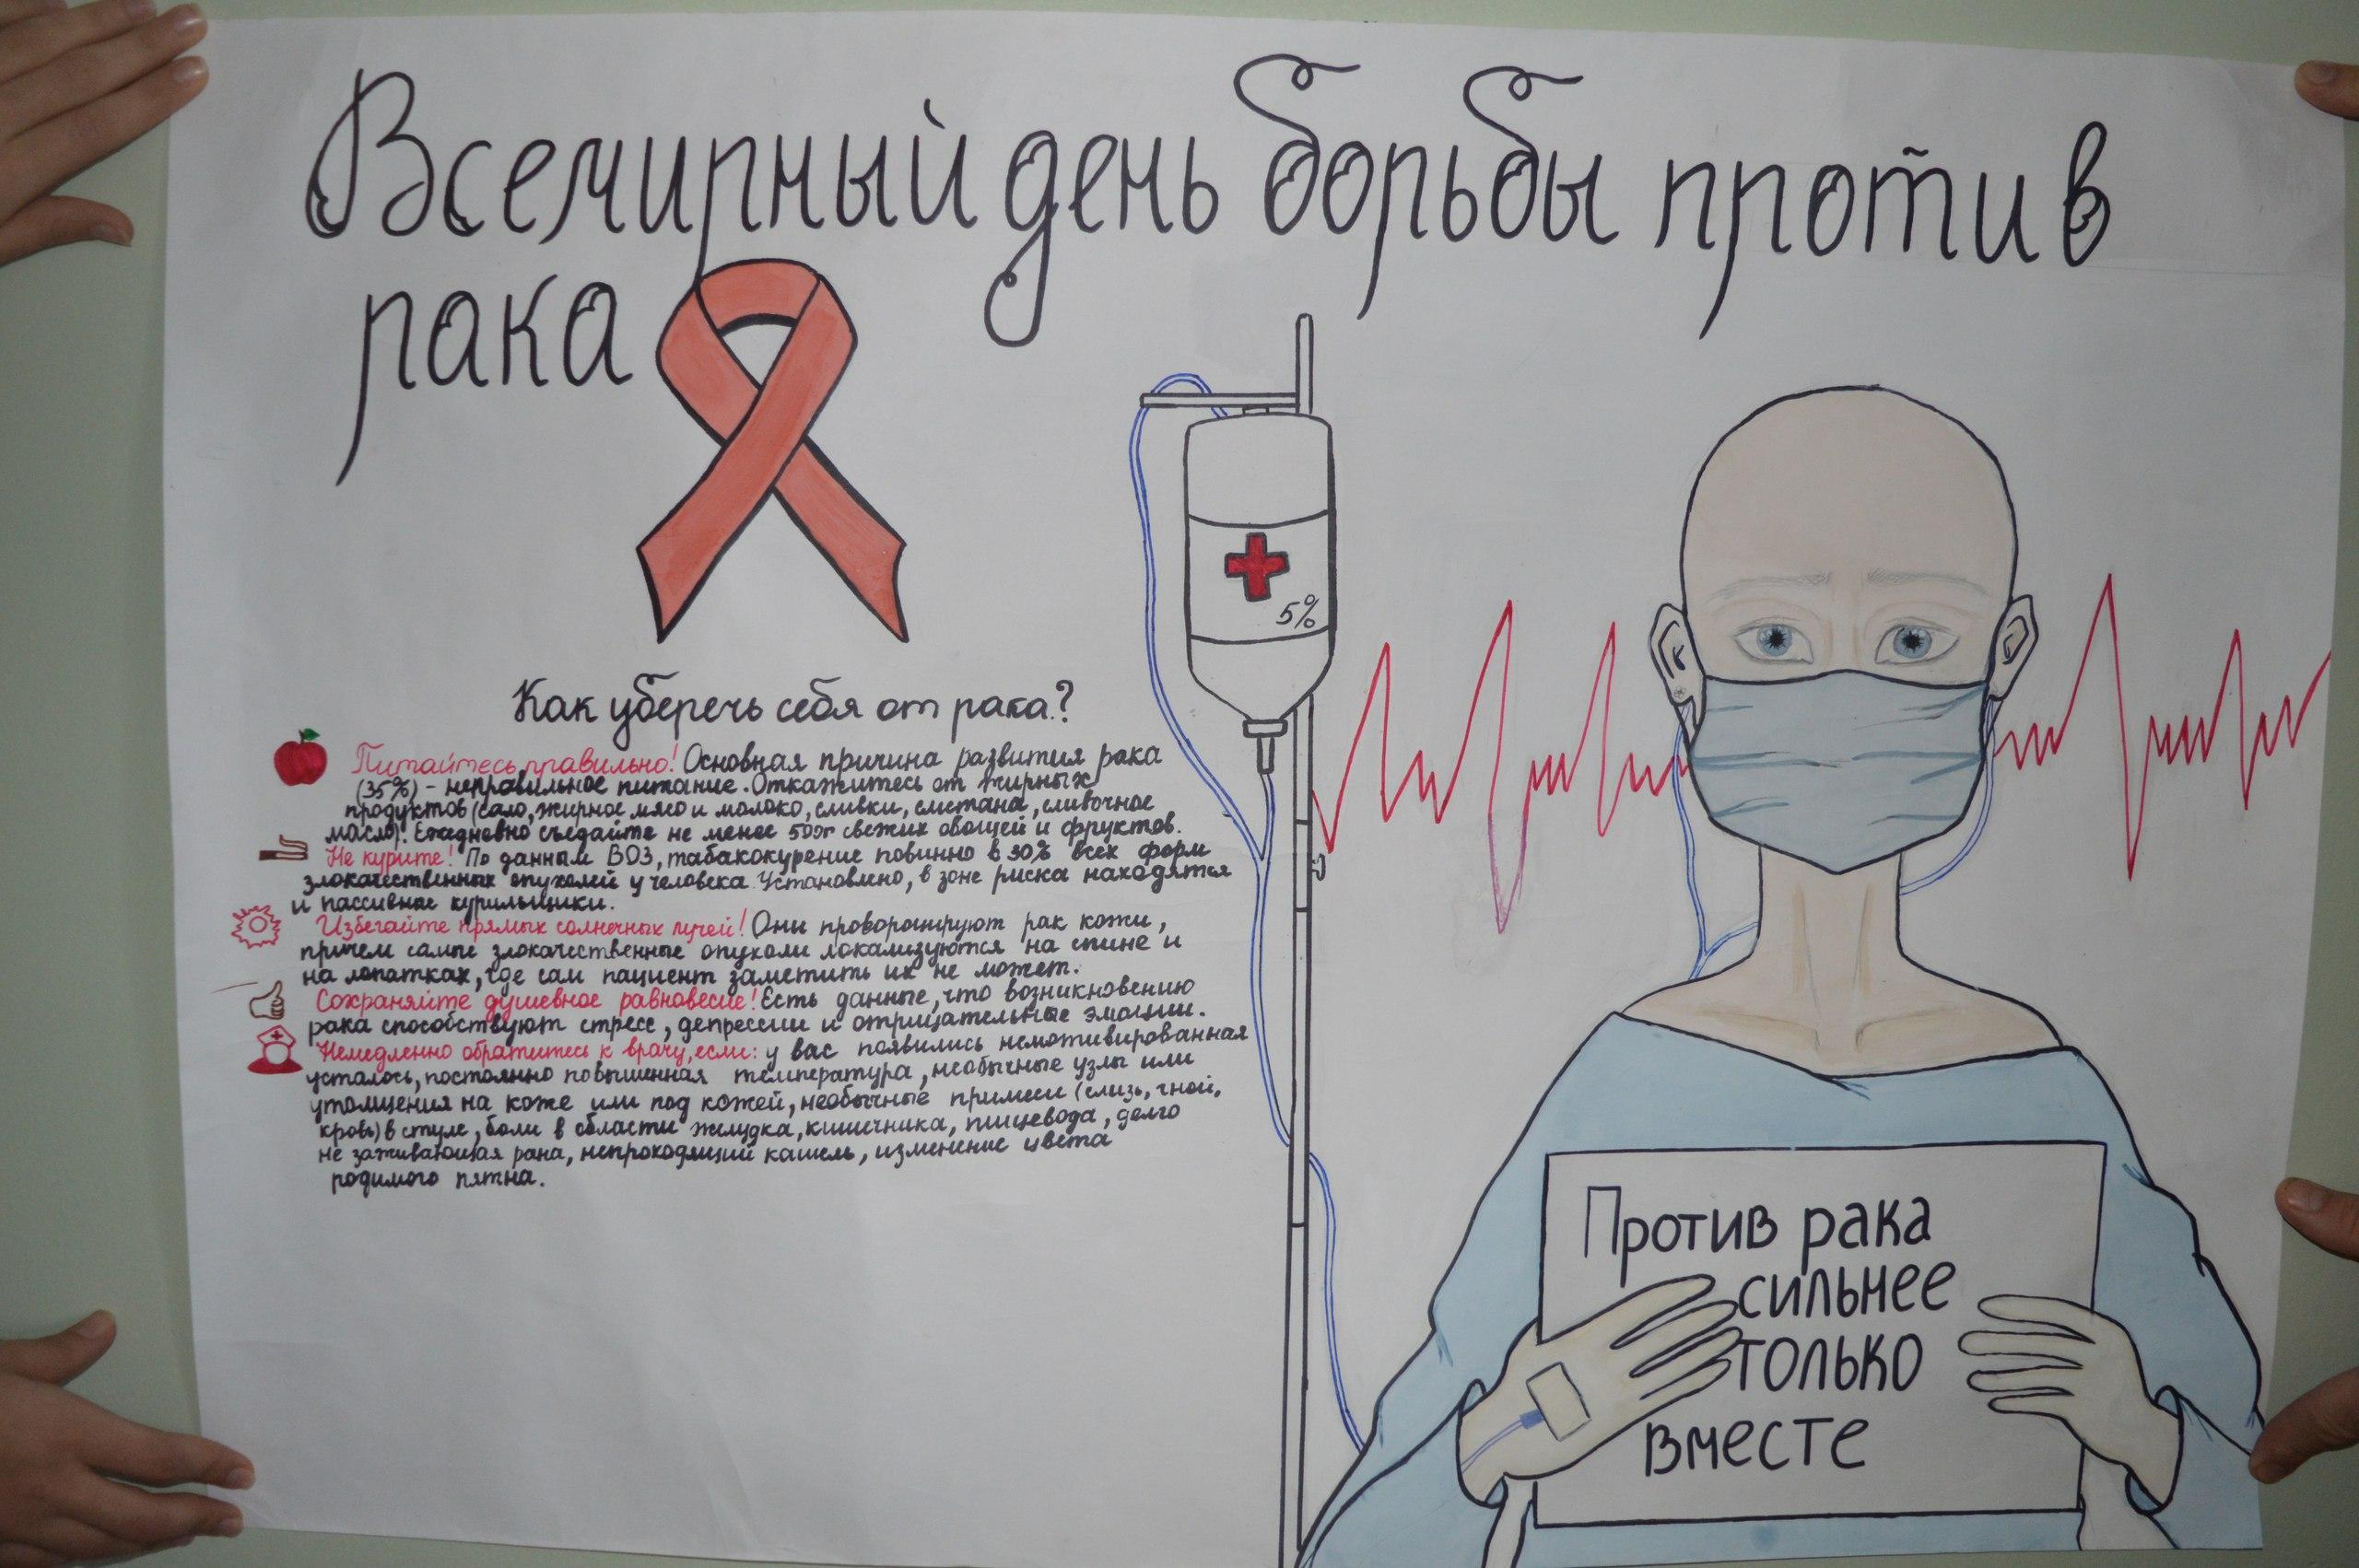 Всемирный день борьбы против
рака
5%
Как уберечь себя от рака?
Питайтесь правильно! Основная причина развития рака
(35%) - неправильное питание. Откажитесь от жирных
продуктов (сало, жирное мясо и молоко, сливки, сметана, сливочное
масло). Ежедневно съедайте не менее свежих овощей и фруктов.
Не курите! По данным ВОЗ, табакокурение повинно в 30% всех форм
злокачественных опухолей у человека. Установлено, в зоне риска находятся
и пассивные курильщики.
Избегайте прямых солнечных лучей! Они рак кожи,
причем самые злокачественные опухоли локализуются на спине и
на лопатках, где сам пациент заметить их не может.
Сохраняйте душевное равновесие! Есть данные, что возникновению
рака способствуют стресс, депрессии и отрицательные эмоции.
Немедленно обратитесь к врачу, если: у вас появились немотивированная
усталось, постоянно повышенная температура, необычные узлы или
утолщения на коже или под кожей, необычные примеси (слизь, гной,
кровь) в стуле, боли в области желудка, кишечника, пищевода, долго
не заживающая рана, непроходящий кашель, изменение цвета
родимого пятна.
Против рака
сильнее
только
вместе